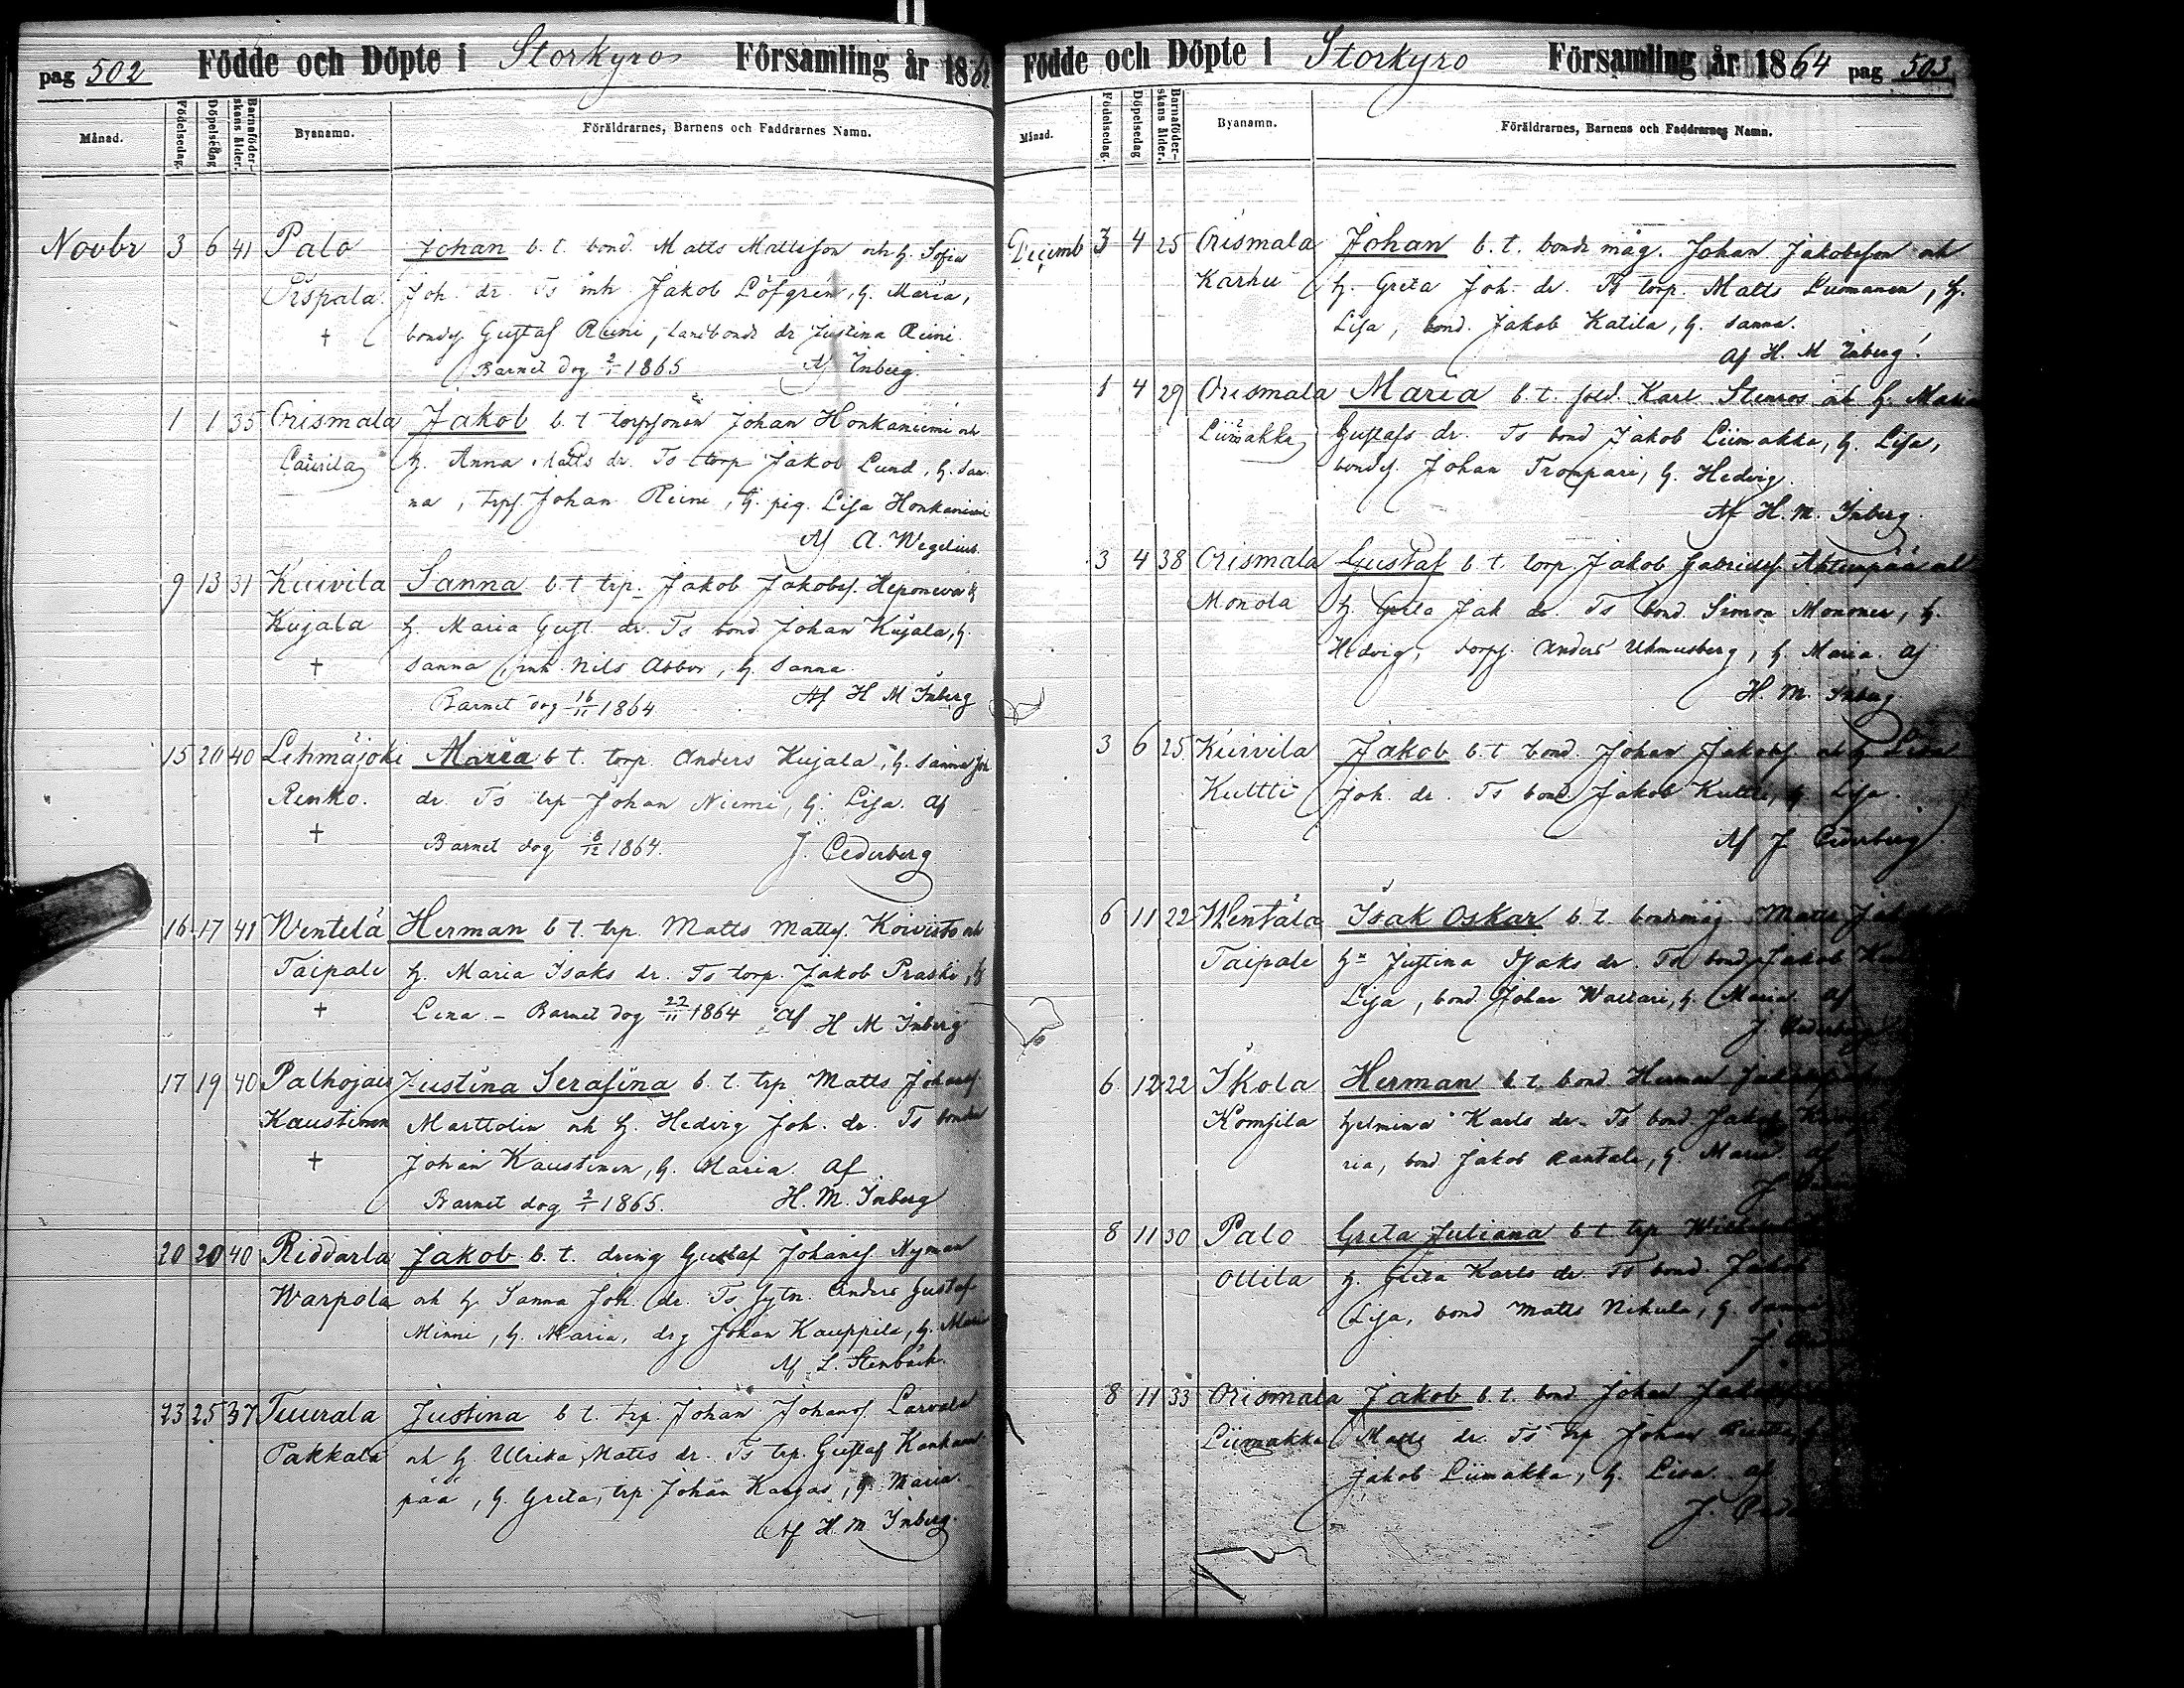 pag 502 Födde och Döpte i Storkyro Församling år 1864
Månad. Födelsedag. Döpelsedag Barnaföderskans ålder. Byanamn. Föräldrarnes, Barnens och Faddrarnes Namn.
Novbr 3 6 41 Palo Johan b. t. bond. Matts Mattsson och h. Sofia
Orspala Joh. dr. Ts inh Jakob Löfgren, h. Maria,
† bondes. Gustaf Reini, bonde dr Justina Reini.
Barnet dog 2/1 1865 Af Inberg.
1 1 35 Orismala Jakob b. t torpsonen Johan Honkaniemi och
Laurila h. Anna Matts dr. Ts torp Jakob Lund, h. San-
na, trps Johan Reini, h. pig. Lisa Honkaniemi
Af A. Wegelius.
9 13 31 Kuivila Sanna b. t trp. Jakob Jakobs. Heponeva &
Kujala h. Maria Gust. dr. Ts bond Johan Kujala, h.
† Sanna, inh. Nils Abbor, h. Sanna.
Barnet dog 16/11 1864 Af H M Inberg
15 20 40 Lehmäjoki Maria b t. torp. Anders Kujala, h. Sanna Joh
Renko. dr. Ts trp Johan Niemi, h. Lisa. Af
† Barnet dog 8/12 1864. J. Cederberg
16 17 41 Wentelä Herman b t. trp. Matts Matts. Koivisto och
Taipale h. Maria Isaks dr. Ts torp. Jakob Praski, h
† Lena. – Barnet dog 22/11 1864 Af H M Inberg
17 19 40 Palhojais Justina Serafina b. t. trp Matts Johans.
Kaustinen Marttolin och h. Hedvig Joh. dr. Ts bonden
† Johan Kaustinen, h. Maria. Af
Barnet dog 2/1 1865. H. M. Inberg
20 20 40 Riddarla Jakob b. t. dreng Gustaf Johans. Nyman
Warpola och h. Sanna Joh. dr. Ts sytn. Anders Gustaf
Minni, h. Maria, drg Johan Kauppila, h. Maria
Af L. Stenbäck.
23 25 37 Tuurala Justina b t. trp. Johan Johans. Larvala
Pakkala och h. Ulrika Matts dr. Ts trp. Gustaf Kankaan
pää, h. Greta, trp. Johan Kangas, h. Maria.
Af H. M. Inberg.
Födde och Döpte i Storkyro Församling år 1864 pag 503
Månad. Födelsedag. Döpelsedag Barnaföderskans ålder. Byanamn. Föräldrarnes, Barnens och Faddrarnes Namn.
Decemb 3 4 25 Orismala Johan b. t. bonde måg. Johan Jakobsson och
Karhu h. Greta Joh. dr. Ts torp. Matts Luomanen, h.
Lisa, bond. Jakob Katila, h. Sanna.
Af H. M Inberg.
1 4 29 Orismala Maria b. t. sold. Karl Stenros och h. Maria
Liimakka Gustafs dr. Ts bond Jakob Liimakka, h. Lisa,
bondes. Johan Trompari, h. Hedvig.
Af H. M. Inberg.
3 4 38 Orismala Gustaf b. t. torp. Jakob Gabriels.
Monola h. Greta Jak dr. Ts bond. Simon Mononen, h.
Hedvig, torps. Anders Uhmusberg, h. Maria. Af
H. M. Inberg
3 6 25 Kuivila Jakob b. t bond. Johan Jakobs. och h Lisa
Kultti Joh. dr. Ts bond Jakob Kultti, h Lisa.
Af J Cederberg
6 11 22 Wentälä Isak Oskar b. t. bondemåg Matts
Taipale hn Justina Isaks dr. Ts bond Jakob
Lisa, bond. Johan Waltari, h. Maria. Af
J Cederberg
6 12 22 Ikola Herman b. t. bond. Herman
Komsila Helmina Karls dr. Ts bond Jakob
ria, bond. Jakob Rantala, h. Maria. Af
J
8 11 30 Palo Greta Juliana b t trp
Ollila h. Greta Karls dr. Ts bond. Jakob
Lisa, bond Matts Nikula, h. Sanna
J
8 11 33 Orismala Jakob b. t. bond Johan
Liimakka Matts dr. Ts trp. Johan
Jakob Liimakka, h. Lisa. af
J.